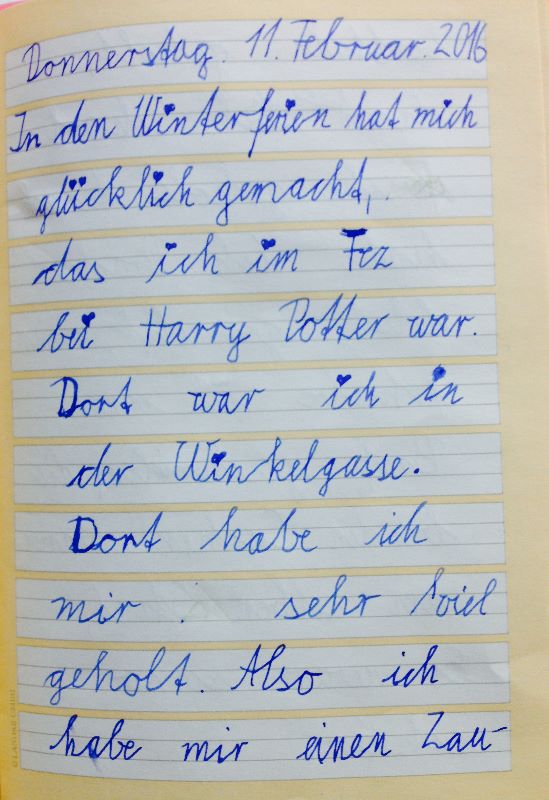 Donnerstag. 11. Februar. 2016
In den Winterferien hat mich
glücklich gemacht,
das ich im Fez
bei Harry Potter war.
Dort war ich in
der Winkelgasse.
Dort habe ich
mir sehr viel
geholt. Also ich
habe mir einen Zau-